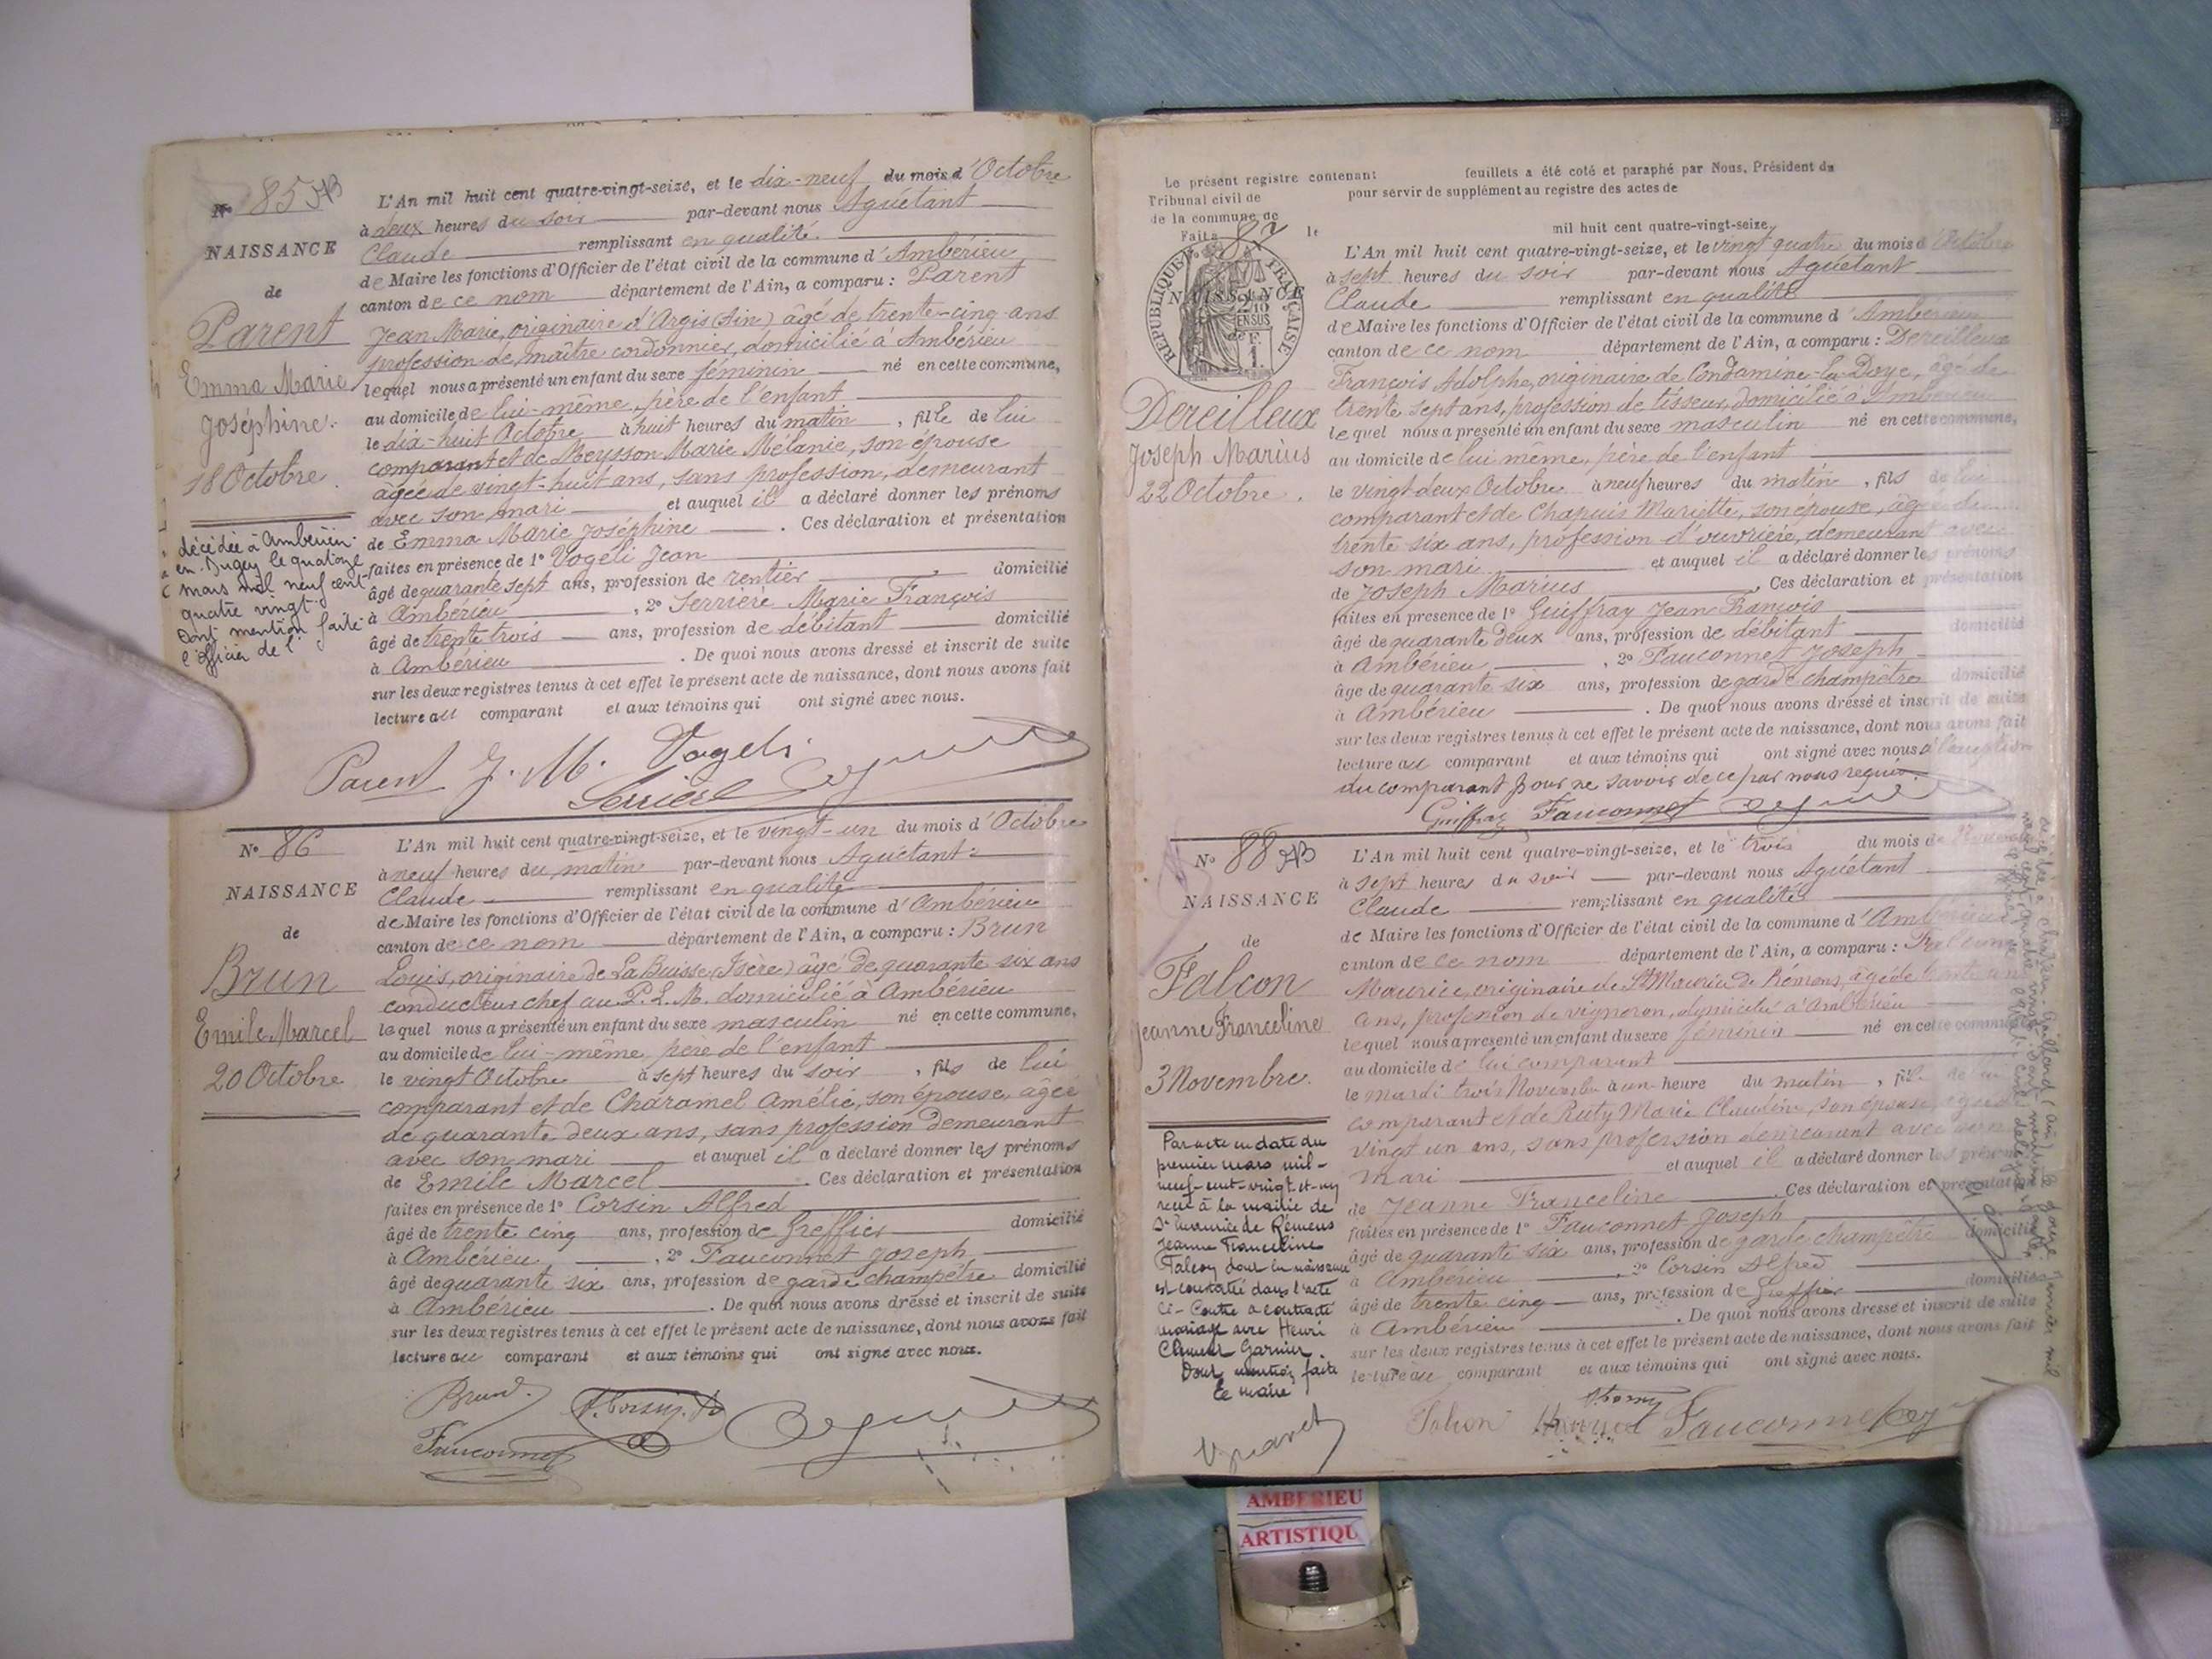 No 85
NAISSANCE
de
Parent
Emma Marie
Joséphine.
18 Octobre.
décédée à Ambérieu-
en-Bugey le quatorze
mars mil neuf cent
quatre vingt
Dont mention faite
l'officier de l'
L'An mil huit cent quatre-vingt-seize, et le dix-neuf du mois d'Octobre
à deux heures du soir par-devant nous Aguétant
Claude remplissant en qualité
de Maire les fonctions d'Officier de l'état civil de la commune d'Ambérieu
canton de ce nom département de l'Ain, a comparu : Parent
Jean Marie, originaire d'Argis (Ain) âgé de trente-cinq ans
profession de maître cordonnier, domicilié à Ambérieu
lequel nous a présenté un enfant du sexe féminin né en cette commune,
au domicile de lui-même, père de l'enfant
le dix-huit Octobre à huit heures du matin, fille de lui
comparant et de Meysson Marie Mélanie, son épouse
âgée de vingt-huit ans, sans profession, demeurant
avec son mari et auquel il a déclaré donner les prénoms
de Emma Marie Joséphine. Ces déclaration et présentation
faites en présence de 1° Vogeli Jean
âgé de quarante sept ans, profession de rentier, domicilié
à Ambérieu, 2° Serrière Marie François
âgé de trente trois ans, profession de débitant domicilié
à Ambérieu. De quoi nous avons dressé et inscrit de suite
sur les deux registres tenus à cet effet le présent acte de naissance, dont nous avons fait
lecture au comparant et aux témoins qui ont signé avec nous.
Parent J. M. Vogeli
Serrière
No 86
NAISSANCE
de
Brun
Emile Marcel
20 Octobre
L'An mil huit cent quatre-vingt-seize, et le vingt-un du mois d'Octobre
à neuf heures du matin par-devant nous Aguétant
Claude remplissant en qualité
de Maire les fonctions d'Officier de l'état civil de la commune d'Ambérieu
canton de ce nom département de l'Ain, a comparu : Brun
Louis, originaire de La Buisse (Isère) âgé de quarante six ans
conducteur chef au P. L. M. domicilié à Ambérieu
lequel nous a présenté un enfant du sexe masculin né en cette commune,
au domicile de lui-même, père de l'enfant
le vingt Octobre à sept heures du soir, fils de lui
comparant et de Charamel Amélie, son épouse, âgée
de quarante deux ans, sans profession demeurant
avec son mari et auquel il a déclaré donner les prénoms
de Emile Marcel. Ces déclaration et présentation
faites en présence de 1° Corsin Alfred
âgé de trente cinq ans, profession de Greffier domicilié
à Ambérieu, 2° Fauconnet Joseph
âgé de quarante six ans, profession de garde champêtre domicilié
à Ambérieu. De quoi nous avons dressé et inscrit de suite
sur les deux registres tenus à cet effet le présent acte de naissance, dont nous avons fait
lecture au comparant et aux témoins qui ont signé avec nous.
Brun. A. Corsin
Fauconnet
Le présent registre contenant feuillets a été coté et paraphé par Nous, Président du
Tribunal civil de pour servir de supplément au registre des actes de
de la commune de
Fait à le mil huit cent quatre-vingt-seize.
No 87
NAISSANCE
RÉPUBLIQUE FRANÇAISE
2/10
EN SUS
1 F.
Dereilleux
Joseph Marius
22 Octobre.
L'An mil huit cent quatre-vingt-seize, et le vingt quatre du mois d'Octobre
à sept heures du soir par-devant nous Aguétant
Claude remplissant en qualité
de Maire les fonctions d'Officier de l'état civil de la commune d'Ambérieu
canton de ce nom département de l'Ain, a comparu : Dereilleux
François Adolphe, originaire de Condamine-la-Doye, âgé de
trente sept ans, profession de tisseur, domicilié à Ambérieu
lequel nous a présenté un enfant du sexe masculin né en cette commune,
au domicile de lui même, père de l'enfant
le vingt deux Octobre à neuf heures du matin, fils de lui
comparant et de Chapuis Mariette, son épouse, âgée de
trente six ans, profession d'ouvrière, demeurant avec
son mari et auquel il a déclaré donner les prénoms
de Joseph Marius. Ces déclaration et présentation
faites en présence de 1° Guiffray Jean François
âgé de quarante deux ans, profession de débitant domicilié
à Ambérieu, 2° Fauconnet Joseph
âgé de quarante six ans, profession de garde champêtre domicilié
à Ambérieu. De quoi nous avons dressé et inscrit de suite
sur les deux registres tenus à cet effet le présent acte de naissance, dont nous avons fait
lecture au comparant et aux témoins qui ont signé avec nous à l'exception
du comparant pour ne savoir de ce par nous requis.
Guiffray Fauconnet
No 88
NAISSANCE
de
Falcon
Jeanne Franceline
3 Novembre.
Par acte en date du
premier mars mil-
neuf-cent-vingt-et-un
reçu à la mairie de
St Maurice de Rémens
Jeanne Franceline
Falcon dont la naissance
est constatée dans l'acte
ci-contre a contracté
mariage avec Henri
Clément Garnier.
Dont mention faite
Le maire
L'An mil huit cent quatre-vingt-seize, et le trois du mois de Novembre
à sept heures du soir par-devant nous Aguétant
Claude remplissant en qualité
de Maire les fonctions d'Officier de l'état civil de la commune d'Ambérieu
canton de ce nom département de l'Ain, a comparu :
Maurice, originaire de St Maurice de Rémens, âgé de
ans, profession de vigneron, domicilié à Ambérieu
lequel nous a présenté un enfant du sexe féminin né en cette commune
au domicile de lui comparant
le mardi trois Novembre à une heure du matin, fille de lui
comparant et de Ruty Marie Claudine, son épouse, âgée de
vingt un ans, sans profession demeurant avec son
mari et auquel il a déclaré donner les prénoms
de Jeanne Franceline. Ces déclaration et présentation
faites en présence de 1° Fauconnet Joseph
âgé de quarante six ans, profession de garde champêtre domicilié
à Ambérieu, 2° Corsin Alfred
âgé de trente cinq ans, profession de Greffier domicilié
à Ambérieu. De quoi nous avons dressé et inscrit de suite
sur les deux registres tenus à cet effet le présent acte de naissance, dont nous avons fait
lecture au comparant et aux témoins qui ont signé avec nous.
Falcon Fauconnet
AMBERIEU
ARTISTIQU